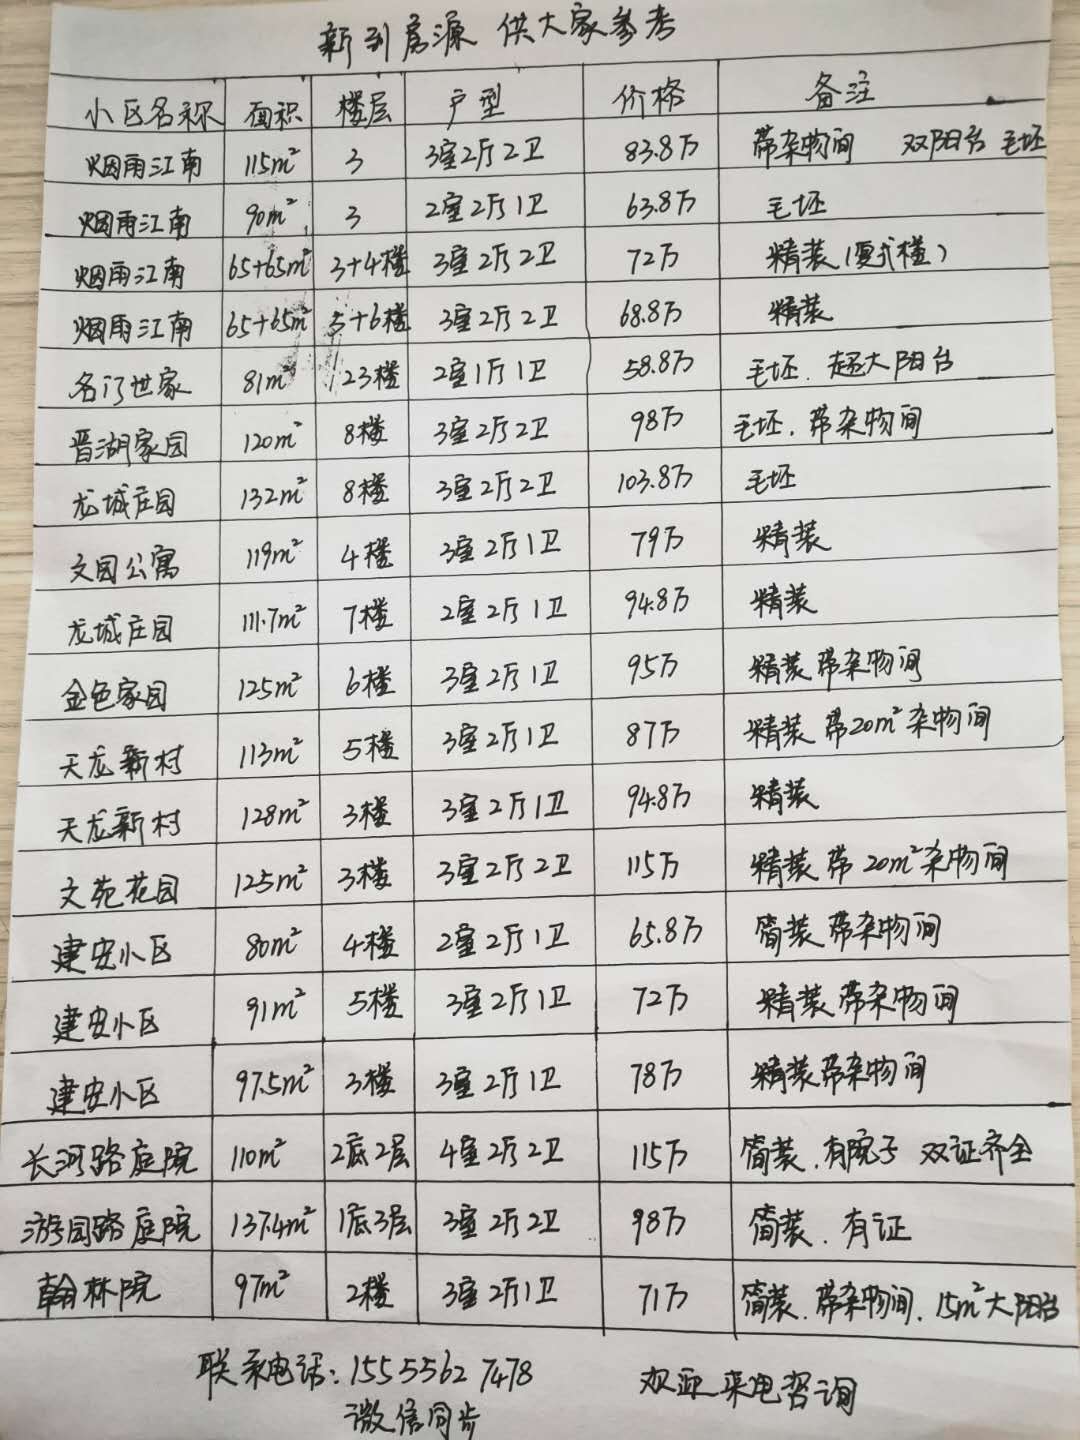 新到房源 供大家参考
小区名称 面积 楼层 户型 价格 备注
烟雨江南 115m² 3 3室2厅2卫 83.8万 带杂物间 双阳台 毛坯
烟雨江南 90m² 3 2室2厅1卫 63.8万 毛坯
烟雨江南 65+65m² 3+4楼 3室2厅2卫 72万 精装(复式楼)
烟雨江南 65+65m² 5+6楼 3室2厅2卫 68.8万 精装
名门世家 81m² 23楼 2室1厅1卫 58.8万 毛坯.超大阳台
晋湖家园 120m² 8楼 3室2厅2卫 98万 毛坯.带杂物间
龙城庄园 132m² 8楼 3室2厅2卫 103.8万 毛坯
文园公寓 119m² 4楼 3室2厅1卫 79万 精装
龙城庄园 111.7m² 7楼 2室2厅1卫 94.8万 精装
金色家园 125m² 6楼 3室2厅1卫 95万 精装带杂物间
天龙新村 113m² 5楼 3室2厅1卫 87万 精装带20m²杂物间
天龙新村 128m² 3楼 3室2厅1卫 94.8万 精装
文苑花园 125m² 3楼 3室2厅2卫 115万 精装带20m²杂物间
建安小区 80m² 4楼 2室2厅1卫 65.8万 简装带杂物间
建安小区 91m² 5楼 3室2厅1卫 72万 精装带杂物间
建安小区 97.5m² 3楼 3室2厅1卫 78万 精装带杂物间
长河路庭院 110m² 2底2层 4室2厅2卫 115万 简装.有院子 双证齐全
游园路庭院 137.4m² 1底3层 3室2厅2卫 98万 简装.有证
翰林院 97m² 2楼 3室2厅1卫 71万 简装.带杂物间.15m²大阳台
联系电话:15555627478 欢迎来电咨询
微信同步